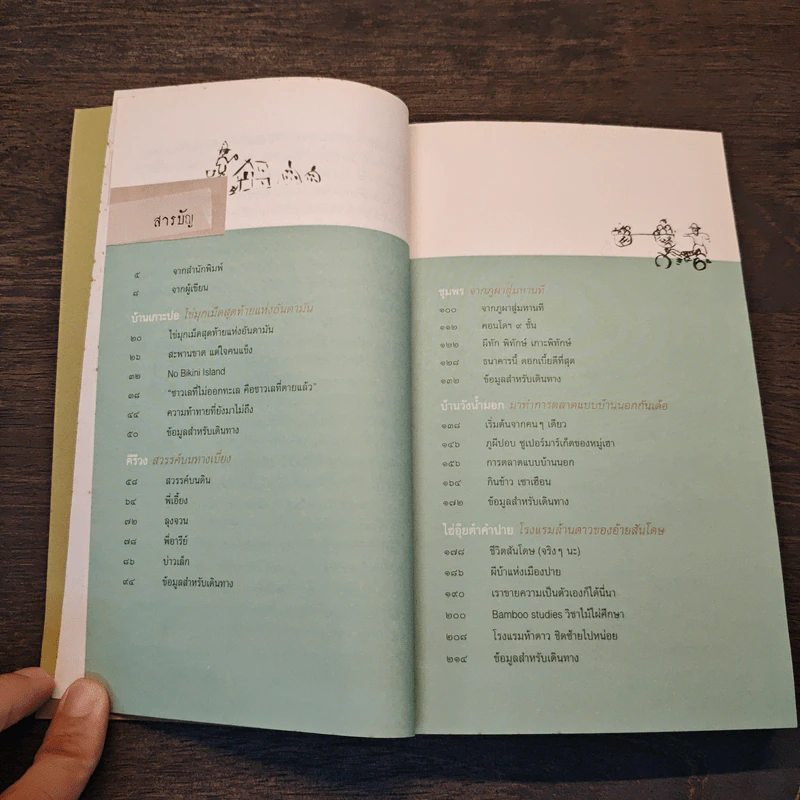 สารบัญ
๕ จากสำนักพิมพ์
๘ จากผู้เขียน
บ้านเกาะปอ ไข่มุกเม็ดสุดท้ายแห่งอันดามัน
๒๐ ไข่มุกเม็ดสุดท้ายแห่งอันดามัน
๒๖ สะพานขาด แต่ใจคนแข็ง
๓๒ No Bikini Island
๓๘ “ชาวเลที่ไม่ออกทะเล คือชาวเลที่ตายแล้ว”
๔๔ ความท้าทายที่ยังมาไม่ถึง
๕๐ ข้อมูลสำหรับเดินทาง
คีรีวง สวรรค์บนทางเบี่ยง
๕๘ สวรรค์บนดิน
๖๔ พี่เอี้ยง
๗๒ ลุงจวน
๗๘ พี่อารีย์
๘๖ บ่าวเล็ก
๙๔ ข้อมูลสำหรับเดินทาง
ชุมพร จากภูผาสู่มหานที
๑๐๐ จากภูผาสู่มหานที
๑๑๒ คอนโดฯ ๙ ชั้น
๑๒๒ ผีทัก พิทักษ์ เกาะพิทักษ์
๑๒๘ ธนาคารนี้ ดอกเบี้ยดีที่สุด
๑๓๒ ข้อมูลสำหรับเดินทาง
บ้านวังน้ำมอก มาทำการตลาดแบบบ้านนอกกันเด้อ
๑๓๘ เริ่มต้นจากคนๆ เดียว
๑๔๖ ภูผีปอบ ซูเปอร์มาร์เก็ตของหมู่เฮา
๑๕๖ การตลาดแบบบ้านนอก
๑๖๔ กินข้าว เซาเฮือน
๑๗๒ ข้อมูลสำหรับเดินทาง
ไข่อุ๊ยคำคำปาย โรงแรมล้านดาวของอ้ายสันโดษ
๑๗๘ ชีวิตสันโดษ (จริงๆ นะ)
๑๘๖ ผีบ้าแห่งเมืองปาย
๑๙๐ เราขายความเป็นตัวเองก็ได้นี่นา
๒๐๐ Bamboo studies วิชาไม้ไผ่ศึกษา
๒๐๘ โรงแรมห้าดาว ชิดซ้ายไปหน่อย
๒๑๔ ข้อมูลสำหรับเดินทาง